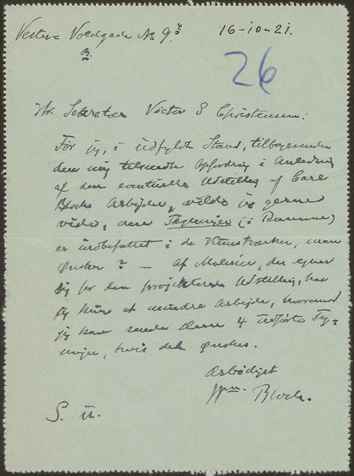 Vestre Voldgade No 9³
16-10-21.
2.
26
Hr. Sekretær Victor S Christensen:
Før jeg, i udfyldt Stand, tilbagesender
den mig tilsendte Opfordring i Anledning
af den eventuelle Udstilling af Carl
Blochs Arbejder, vilde jeg gerne
vide, om Tegninger (i Ramme)
er indbefattet i de Kunstværker, man
ønsker? — af Malerier, der egner
sig for den projekterede Udstilling, har
jeg kun et mindre Arbejde, hvorimod
jeg har
4 udførte Teg-
ninger, hvis det ønskes.
Ærbødigst
Wm. Bloch.
S. u.